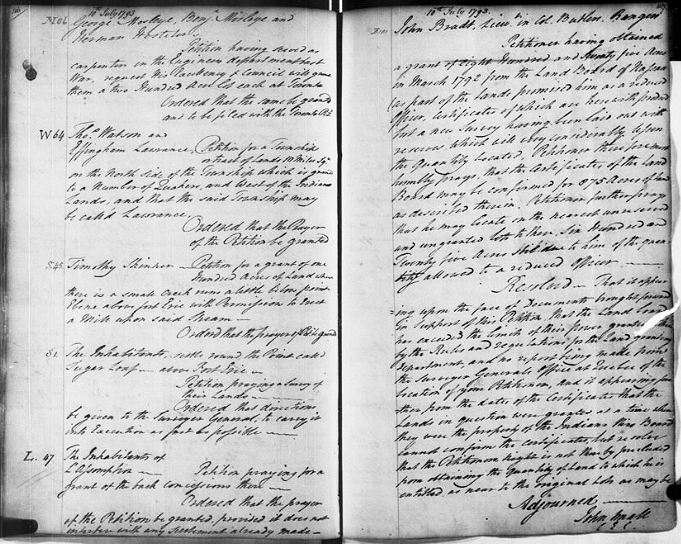 10th July 1793
M 06 George Mosleye, Benj. Mosleye and
Petition having served as
carpenter in the Engineers department last
War, request this Presidency & Council will grant
them a two Hundred Acre Lot each at Toronto
Ordered that the same be granted
and to be filed with the Toronto Pet.
W 64 Thos. Watson and
Effingham Lawrance, Petition for a Township
or tract of Lands 10 Miles Sqr.
on the North Side of the Township which is granted
to a Number of Quakers, and West of the Indian
Lands, and that the said Township may
be called Lawrance.
Ordered that the Prayer
of the Petition be granted
S 45 Timothy Skinner — Petition for a grant of one
Hundred Acres of Land where
there is a small Creek runs a little below point
Ebino above fort Erie with Permission to Erect
a Mill upon said Stream —
Ordered that the prayer of this be granted
S 1 The Inhabitants, settle round the Point called
Sugar Loaf — above Fort Erie —
Petition praying a Survey of
their Lands —
Ordered that directions
be given to the Surveyor General, to carry it
into Execution as fast as possible —
L. 47 The Inhabitants of
L'Assomption — Petition praying for a
grant of the back concessions there —
Ordered that the prayer
of the Petition be granted, provided it does not
interfere with any Settlement already made —
10th July 1793.
John Bradt, Lieut. in Col. Butlers Rangers
Petitioner having obtained
a grant of Eight Hundred and Seventy five Acres
in March 1792 from the Land Board of Nassau
(as part of the Lands promised him as a reduced
Officer, Certificates of which are herewith produced
but a new Survey having been laid out with
reserves which will very considerably
the Quantity Located, Petitioner therefore most
humbly prays, that the Certificates of the Land
Board may be confirmed for 875 Acres of Land
as described therein. Petitioner further prays
that he may locate on the nearest unreserved
and ungranted Lots to there, Six Hundred and
Twenty five Acres Still due to him of the quan
tity allowed to a reduced Officer —
Resolved — That it appear
=ing upon the face of Documents brought forward
in Support of this Petition, that the Land Board
has exceeded the limits of their power granted to them
by the Rules and regulations, for the Land granting
department, and no report being made from
the Surveyor Generals Office at Quebec of the
location of your Petitioner, and it appearing fur
ther from the date of the Certificates that the
Lands in question were granted at a time when
they were the property of the Indians this Board
cannot confirm the Certificates, but resolve
that the Petitioners height is not thereby precluded
from obtaining the Quantity of Land to which he is
entitled as near to the original Loc. as may be
Adjourned —
John Small